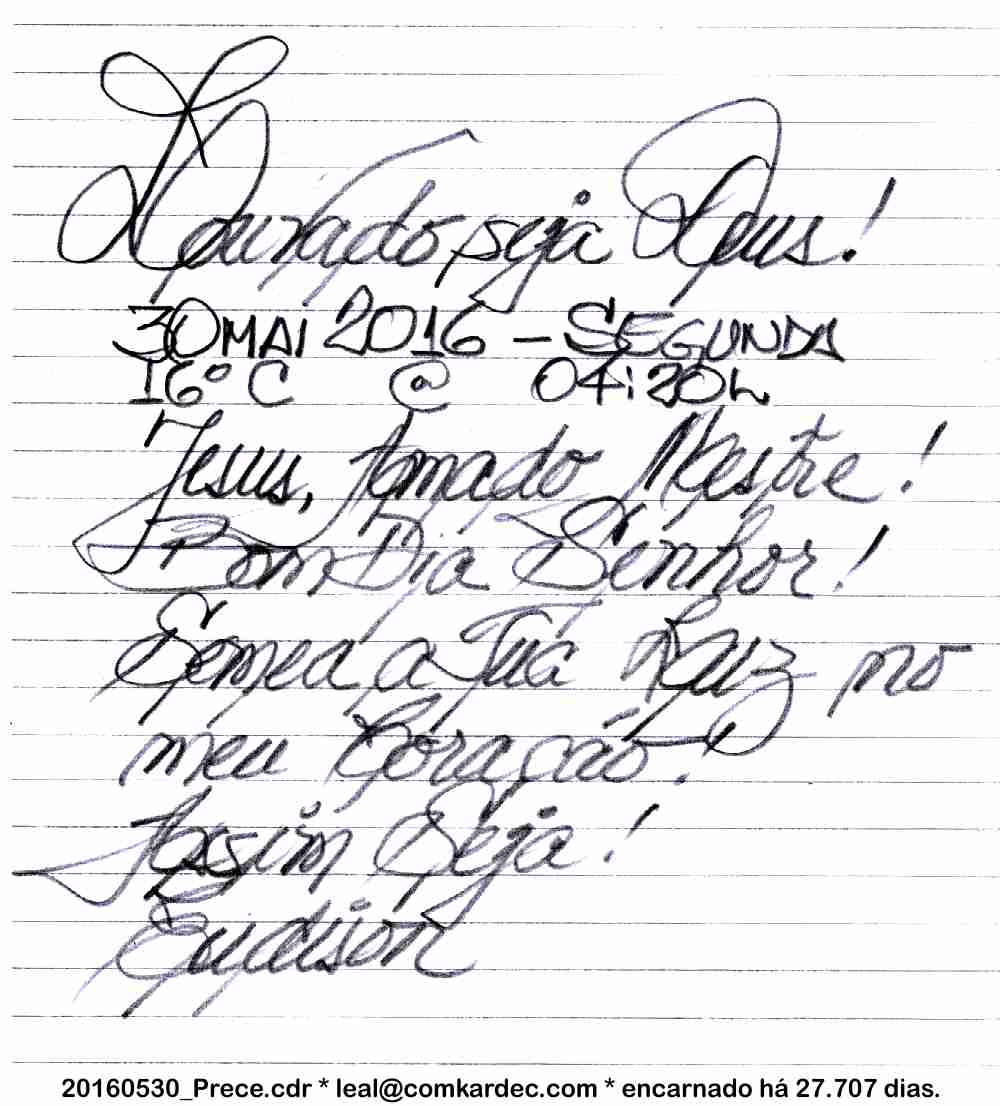 Louvado seja Deus!
30 MAI 2016 - SEGUNDA
16° C @ 04:20h
Jesus, Amado Mestre!
Bom Dia Senhor!
Semea a Tua Luz no
meu Coração!
Assim Seja!
Eudison
20160530_Prece.cdr * leal@comkardec.com * encarnado há 27.707 dias.